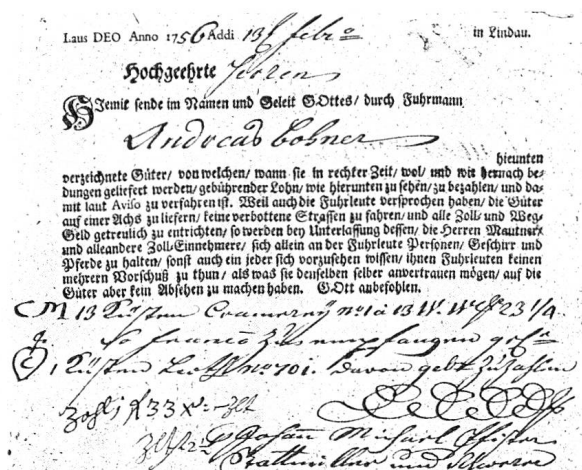 Laus DEO Anno 1756 Addi 13 febr:o in Lindau.
Hochgeehrte Herren
HJemit sende im Namen und Geleit GOttes/ durch Fuhrmann
Andreas Bohner
hierunten
verzeichnete Güter/ von welchen/ wann sie in rechter Zeit/ wol/ und wie hernach be-
dungen geliefert werden/ gebührender Lohn/ wie hierunten zu sehen/ zu bezahlen/ und da-
mit laut Aviso zu verfahren ist. Weil auch die Fuhrleute versprochen haben/ die Güter
auf einer Achs zu liefern/ keine verbottene Strassen zu fahren/ und alle Zoll- und Weg-
Geld getreulich zu entrichten/ so werden bey Unterlassung dessen/ die Herren Mautner
und alleandere Zoll-Einnehmere/ sich allein an der Fuhrleute Personen/ Geschirr und
Pferde zu halten/ sonst auch ein jeder sich vorzusehen wissen/ ihnen Fuhrleuten keinen
mehrern Vorschuß zu thun/ als was sie denselben selber anvertrauen mögen/ auf die
Güter aber kein Absehen zu machen haben. GOtt anbefohlen.
CM 13 Kisten Cramerey no 1 à 13 23 1/4
so franco zu empfangen
1 Kisten no 701. davon gebt zu zahlen
Zahl 1 f 33 x
Johann Michael Pfister